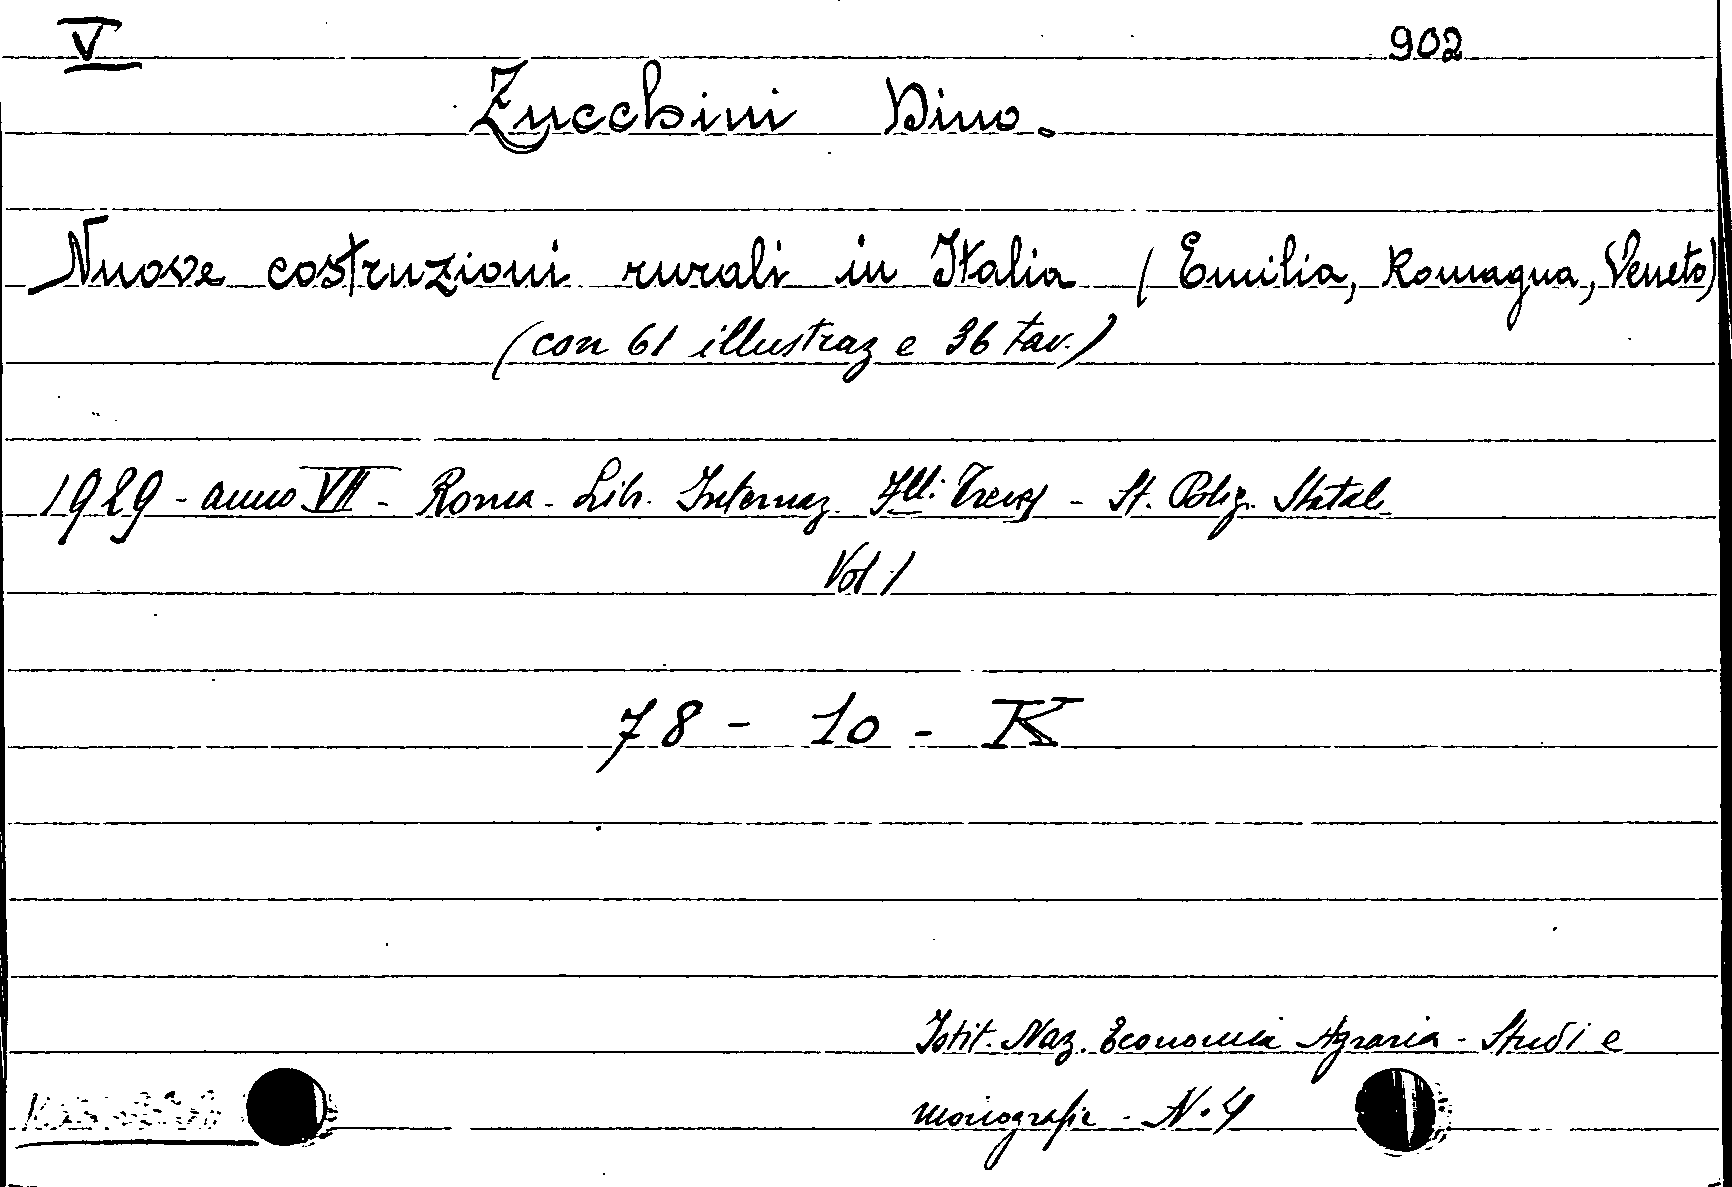 V 902
Zucchini Dino.
Nuove costruzioni rurali in Italia (Emilia, Romagna, Veneto)
(con 61 illustraz e 36 tav.)
1929 - anno VII - Roma - Lib. Internaz. Flli: Treves - St. Polig. Statale
Vol. 1
78 - 10 - K
Istit. Naz. Economia Agraria - Studi e
monografie - N. 4